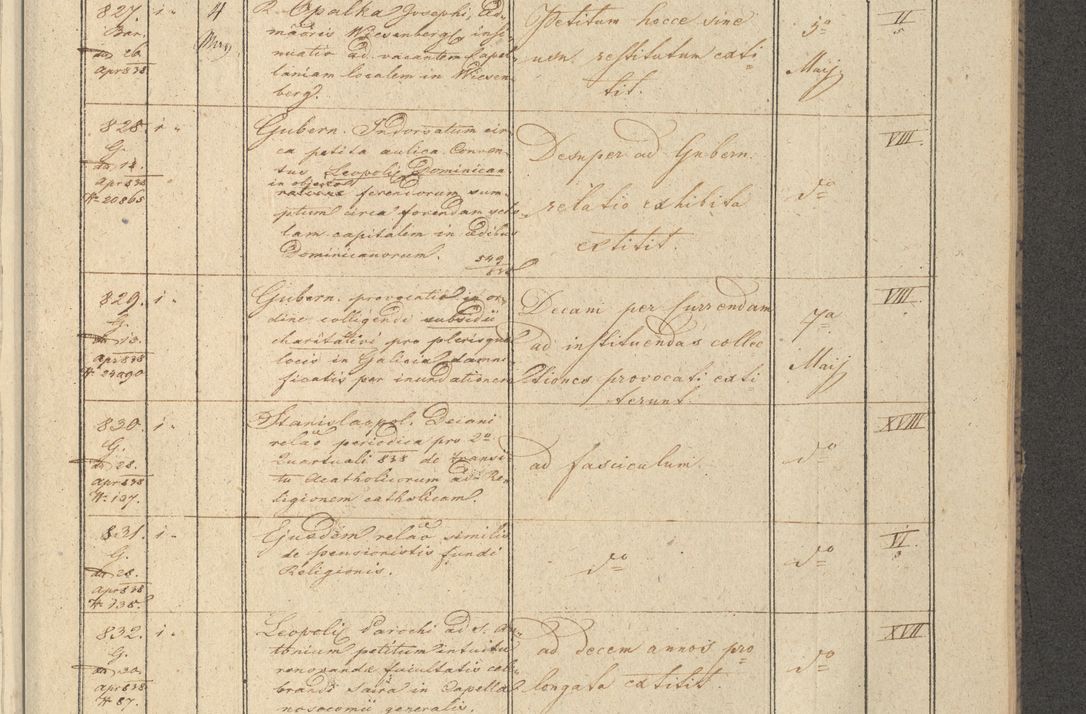 827. i. 4 R. Opalka Josephi, Ad=
Bar. (Mry) maoris Wiesenberg insi=
do 26. nuatio ad vacantem Capel
Apr 838 laniam localem in Wiesen
berg.
Petitum hocce sine
usu restitutum exti
tit.
5a
Maij
II
5
828. i.
G.
do 12.
Apr 838
N. 20865
Gubern. Indorsatum cir
ca petita aulica Conven
tus Leopoli Dominican
in objecto
ferendorum sum=
ptum circa forendam scho=
lam capitalem in Aedibus
Dominicanorum.
549
838
Desuper ad Gubern.
relatio exhibita
extitit.
do
VIII
829. i.
G.
do 13.
Apr 838
N. 24090
Gubern. provocatio in or=
dine colligendi subsidii
charitativi pro plerisque
locis in Galicia damni
ficatis per inundationem
Decani per Currendam
ad instituendas collec
tiones provocati exti
terunt.
7a
Maij
VIII
830. i.
G.
do 28.
Apr 838
N. 137.
Stanislaopol. Decani
relao periodica pro 2o
Quartuali 838 de transi=
tu Acatholicorum ad Re=
ligionem catholicam.
ad fasciculum.
do
XVIII
831. i.
G.
do 28.
Apr 838
N. 138.
Ejusdem relao similis
de pensionistis fundi
Religionis.
do
do
VI
3
832. i.
G.
do 30.
Apr 838
N. 87.
Leopoli Parochi ad S. An=
tonium petitum intuitu
renovandae facultatis cele
brandi Sacra in Capella
nosocomii generalis.
ad decem annos pro
longata extitit.
do
XVII